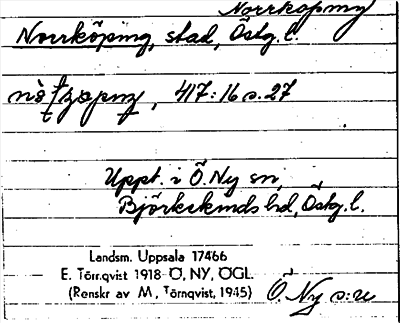 Norrköping
Norrköping, stad, Östg. l.
417:16 s. 27
Uppt. i Ö. Ny sn,
Björkekinds hd, Östg. l.
Landsm. Uppsala 17466
E. Törnqvist 1918 Ö, NY, ÖGL.
(Renskr av M, Törnqvist, 1945)
Ö. Ny s:n